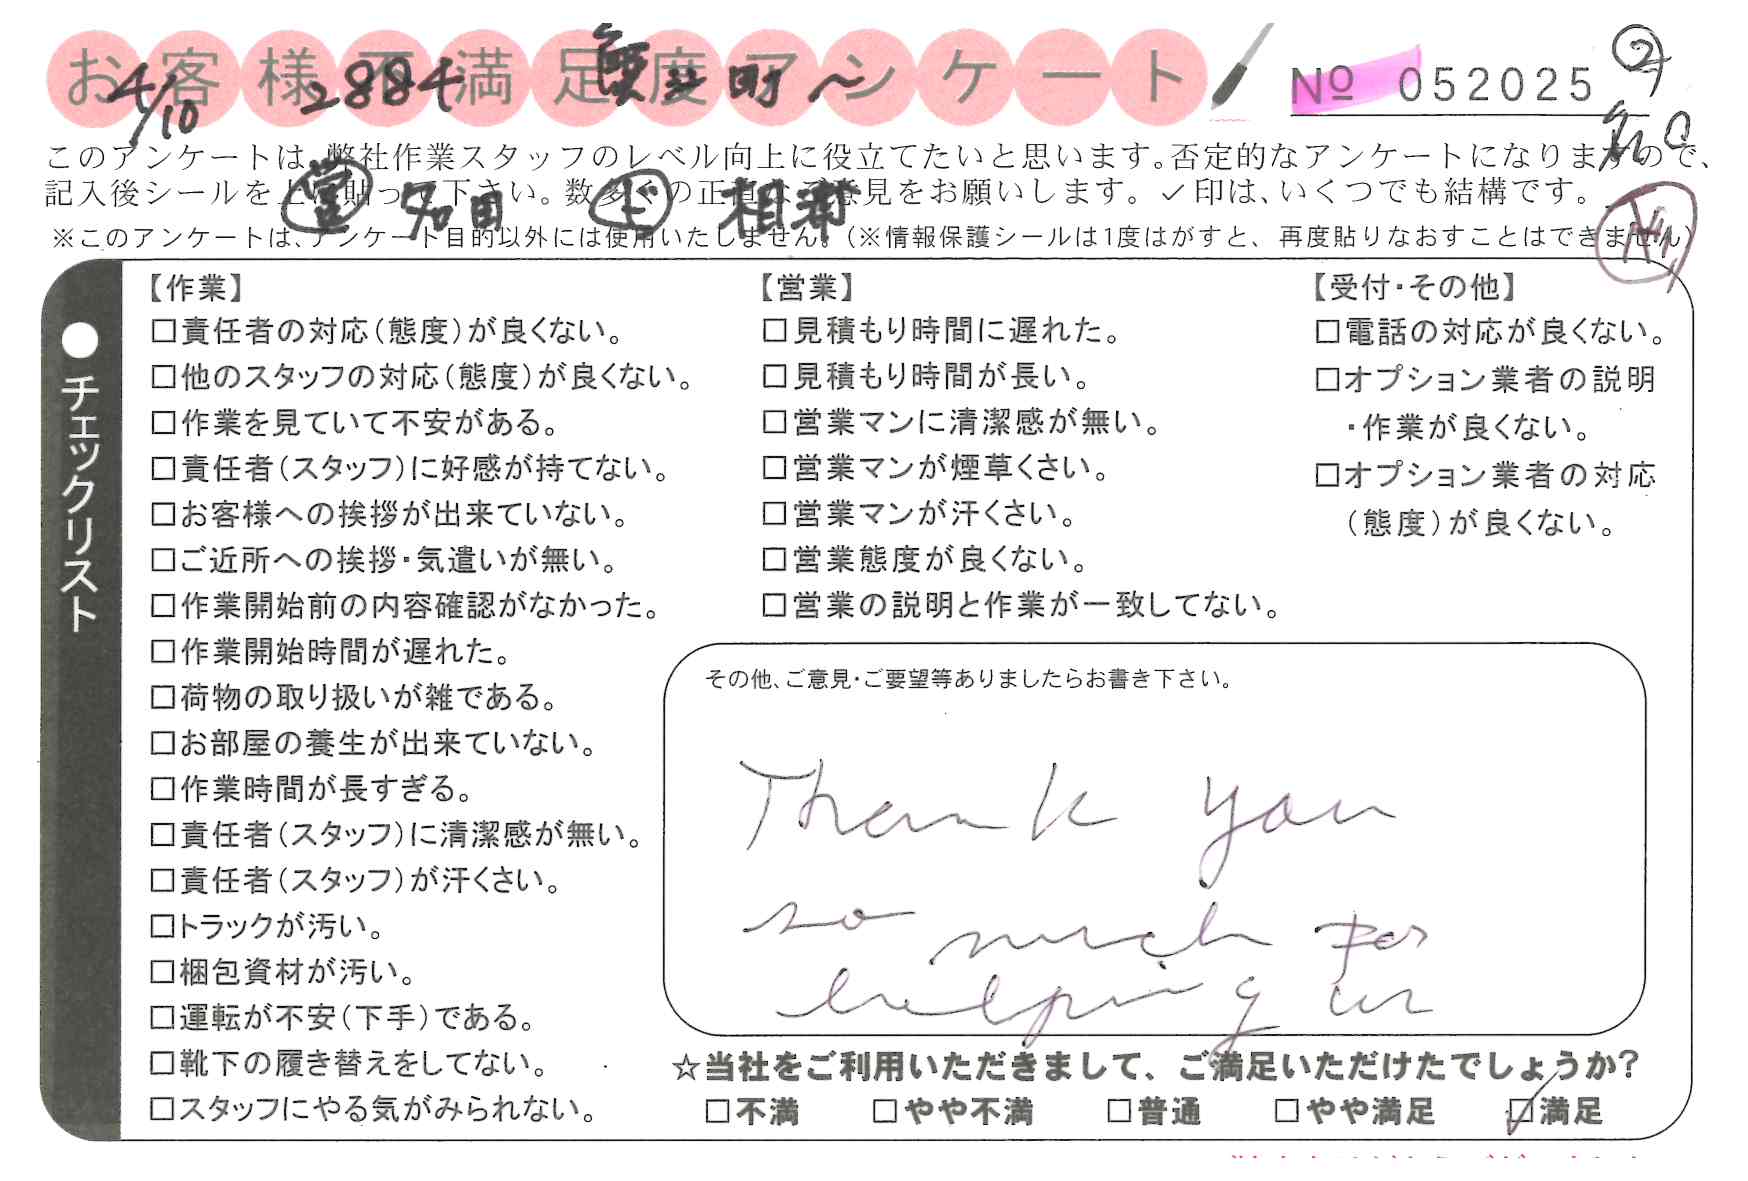 お客様不満足度アンケート
№ 052025
②
4/10 2884 町～
このアンケートは、弊社作業スタッフのレベル向上に役立てたいと思います。否定的なアンケートになりますので、
記入後シールを上に貼って下さい。数多くの正直なご意見をお願いします。✓印は、いくつでも結構です。
営 和田 相
※このアンケートは、アンケート目的以外には使用いたしません。(※情報保護シールは1度はがすと、再度貼りなおすことはできません)
●チェックリスト
【作業】
□責任者の対応(態度)が良くない。
□他のスタッフの対応(態度)が良くない。
□作業を見ていて不安がある。
□責任者(スタッフ)に好感が持てない。
□お客様への挨拶が出来ていない。
□ご近所への挨拶・気遣いが無い。
□作業開始前の内容確認がなかった。
□作業開始時間が遅れた。
□荷物の取り扱いが雑である。
□お部屋の養生が出来ていない。
□作業時間が長すぎる。
□責任者(スタッフ)に清潔感が無い。
□責任者(スタッフ)が汗くさい。
□トラックが汚い。
□梱包資材が汚い。
□運転が不安(下手)である。
□靴下の履き替えをしてない。
□スタッフにやる気がみられない。
【営業】
□見積もり時間に遅れた。
□見積もり時間が長い。
□営業マンに清潔感が無い。
□営業マンが煙草くさい。
□営業マンが汗くさい。
□営業態度が良くない。
□営業の説明と作業が一致してない。
【受付・その他】
□電話の対応が良くない。
□オプション業者の説明
・作業が良くない。
□オプション業者の対応
(態度)が良くない。
その他、ご意見・ご要望等ありましたらお書き下さい。
Thank you
so much for
helping us
☆当社をご利用いただきまして、ご満足いただけたでしょうか?
□不満 □やや不満 □普通 □やや満足 ☑満足